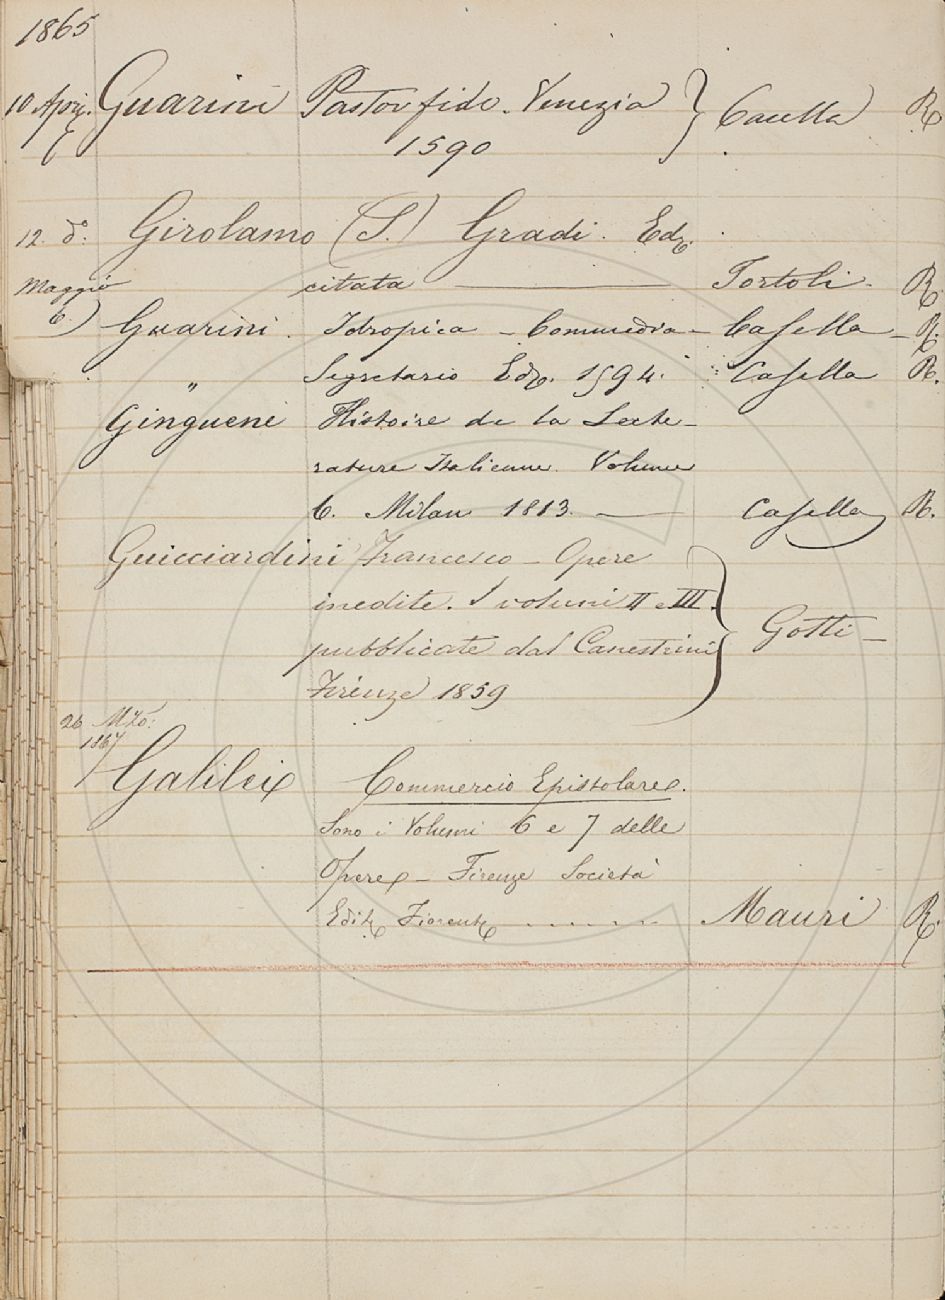 1865
10 Apri. Guarini Pastor fido. Venezia } Casella R.
1590
12. do. Girolamo (S.) Gradi. Ediz.
citata — Tortoli. R.
Maggio
6) Guarini. Idropica - Commedia - Casella - R.
" Segretario Ediz. 1594. Casella R.
Ginguené Histoire de la Lecte-
rature Italienne. Volume
6. Milan 1813. — Casella R.
Guicciardini Francesco - Opere
inedite. I volumi II e III.
pubblicate dal Canestrini } Gotti -
Firenze 1859
26 Mzo:
1867
Galilei Commercio Epistolare.
Sono i Volumi 6 e 7 delle
Opere - Firenze Società
Editr. Fiorent. ....... Mauri R.